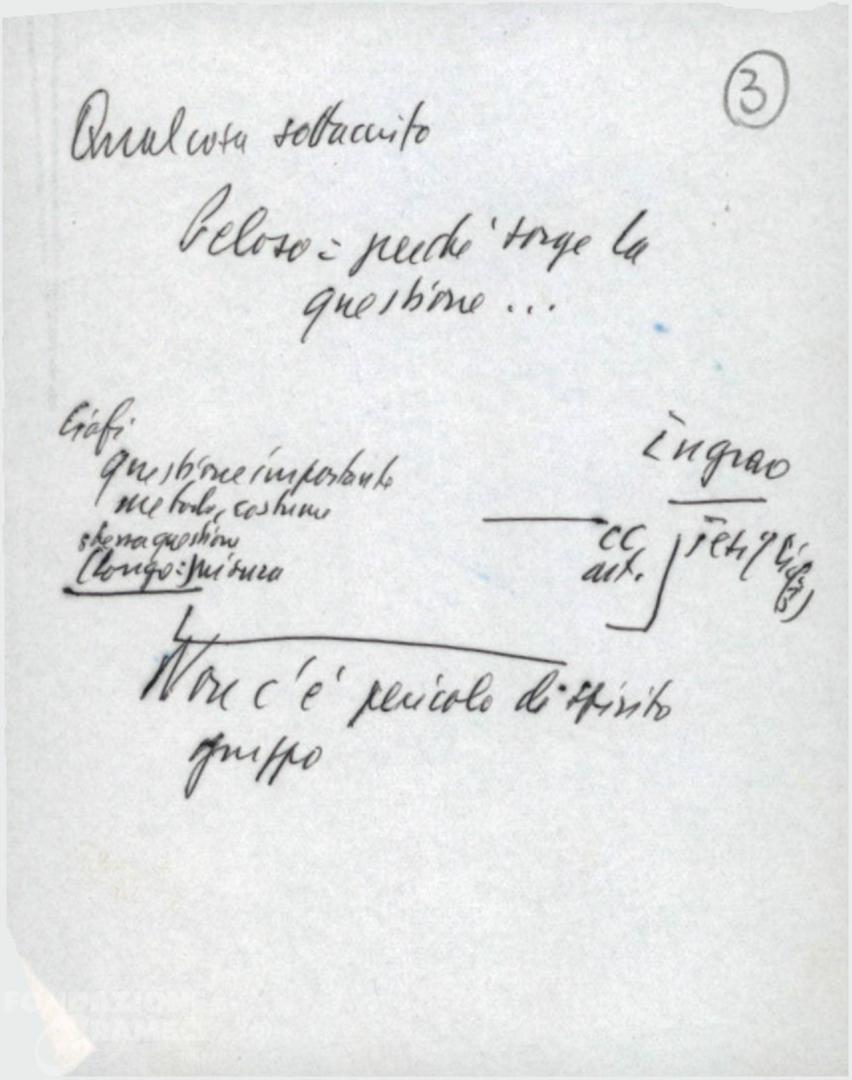 3
Qualcosa sottaciuto
Peloso = perché sorge la
questione ...
Ciofi
questione importante
metodo, costume
stessa questione
(Longo: misura
Ingrao
CC
art.
Non c'è pericolo di spirito
gruppo
FONDAZIONE
GRAMSCI